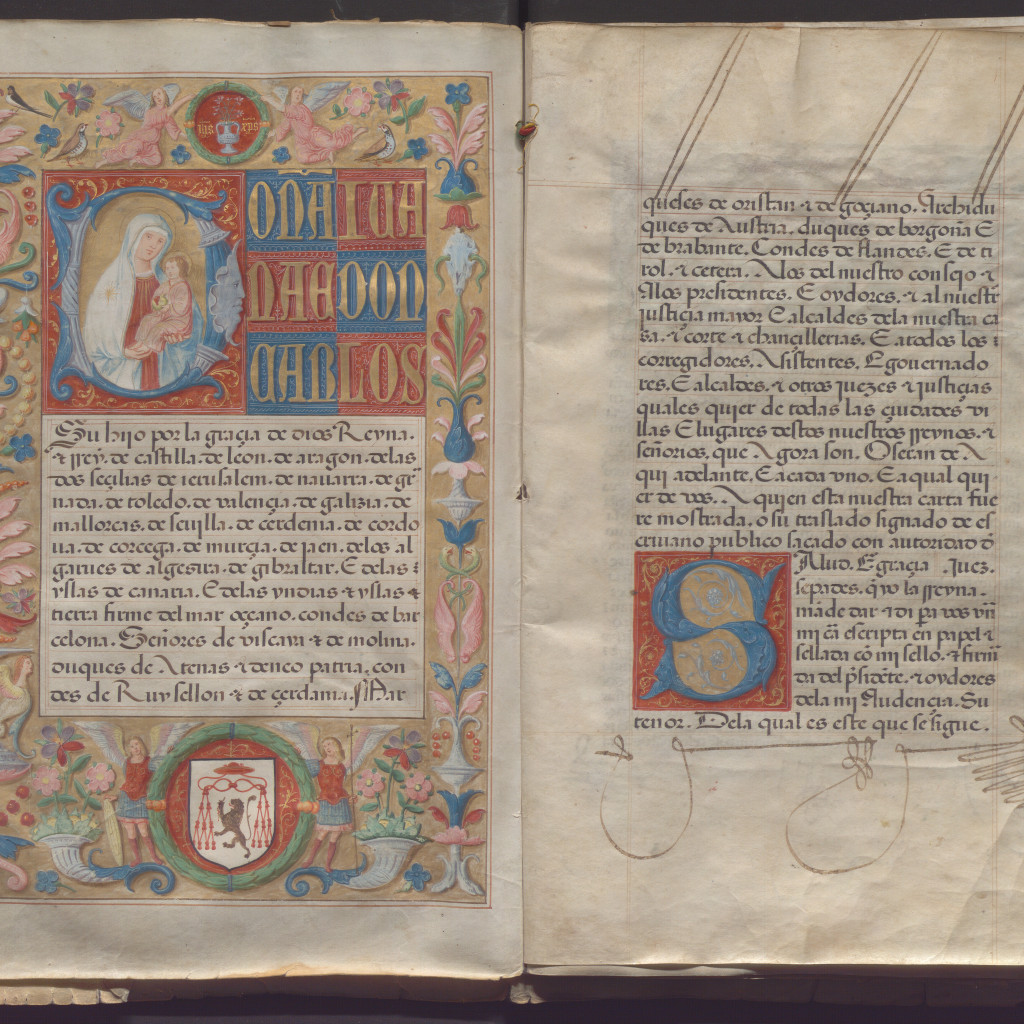 ihs xps
DONA IUA
NA E DON
CARLOS
Su hijo por la graçia de dios Reyna.
& rrey. de castilla. de leon. de aragon. delas
dos seçilias de ierusalem. de nauarra. de gr̃
nada. de toledo. de valençia. de galizia. de
mallorcas. de seuilla. de cerdenia. de cordo
ua. de corcega. de murçia. de jaen. delos al
garues de algesira. de gibraltar. E delas
yslas de canaria. E delas yndias & yslas &
tierra firme del mar oçeano. condes de bar
celona. Señores de viscaya & de molina.
duques de Atenas & deneo patria. con
des de Ruysellon & de çerdania. Mar
queses de oristan & de goçiano. Archidu
ques de Austria. duques de borgoña E
de brabante. Condes de flandes. E de ti
rol. & cetera. Alos del nuestro consejo &
Alos presidentes. E oydores. & al nuestro
justiçia mayor E alcaldes dela nuestra ca
sa. & corte & chançillerias. E atodos los
corregidores. Asistentes. E gouernado
res. E alcaldes. & otros juezes & justiçias
quales quier de todas las çiudades vi
llas E lugares destos nuestros rreynos. &
señorios. que Agora son. O seran de A
qui adelante. E acada vno. E aqual qui
er de vos. A quien esta nuestra carta fue
re mostrada. o su traslado signado de es
criuano publico sacado con autoridad d̃
Salud. E graçia. Juez.
sepades. q̃ yo la rreyna.
mãde dar & di pa vos vñ
mi cã escripta en papel &
sellada cõ mi sello. & firm
da del p̃sidẽte. & oydores
dela mi Audençia. Su
tenor. Dela qual es este que se sigue.